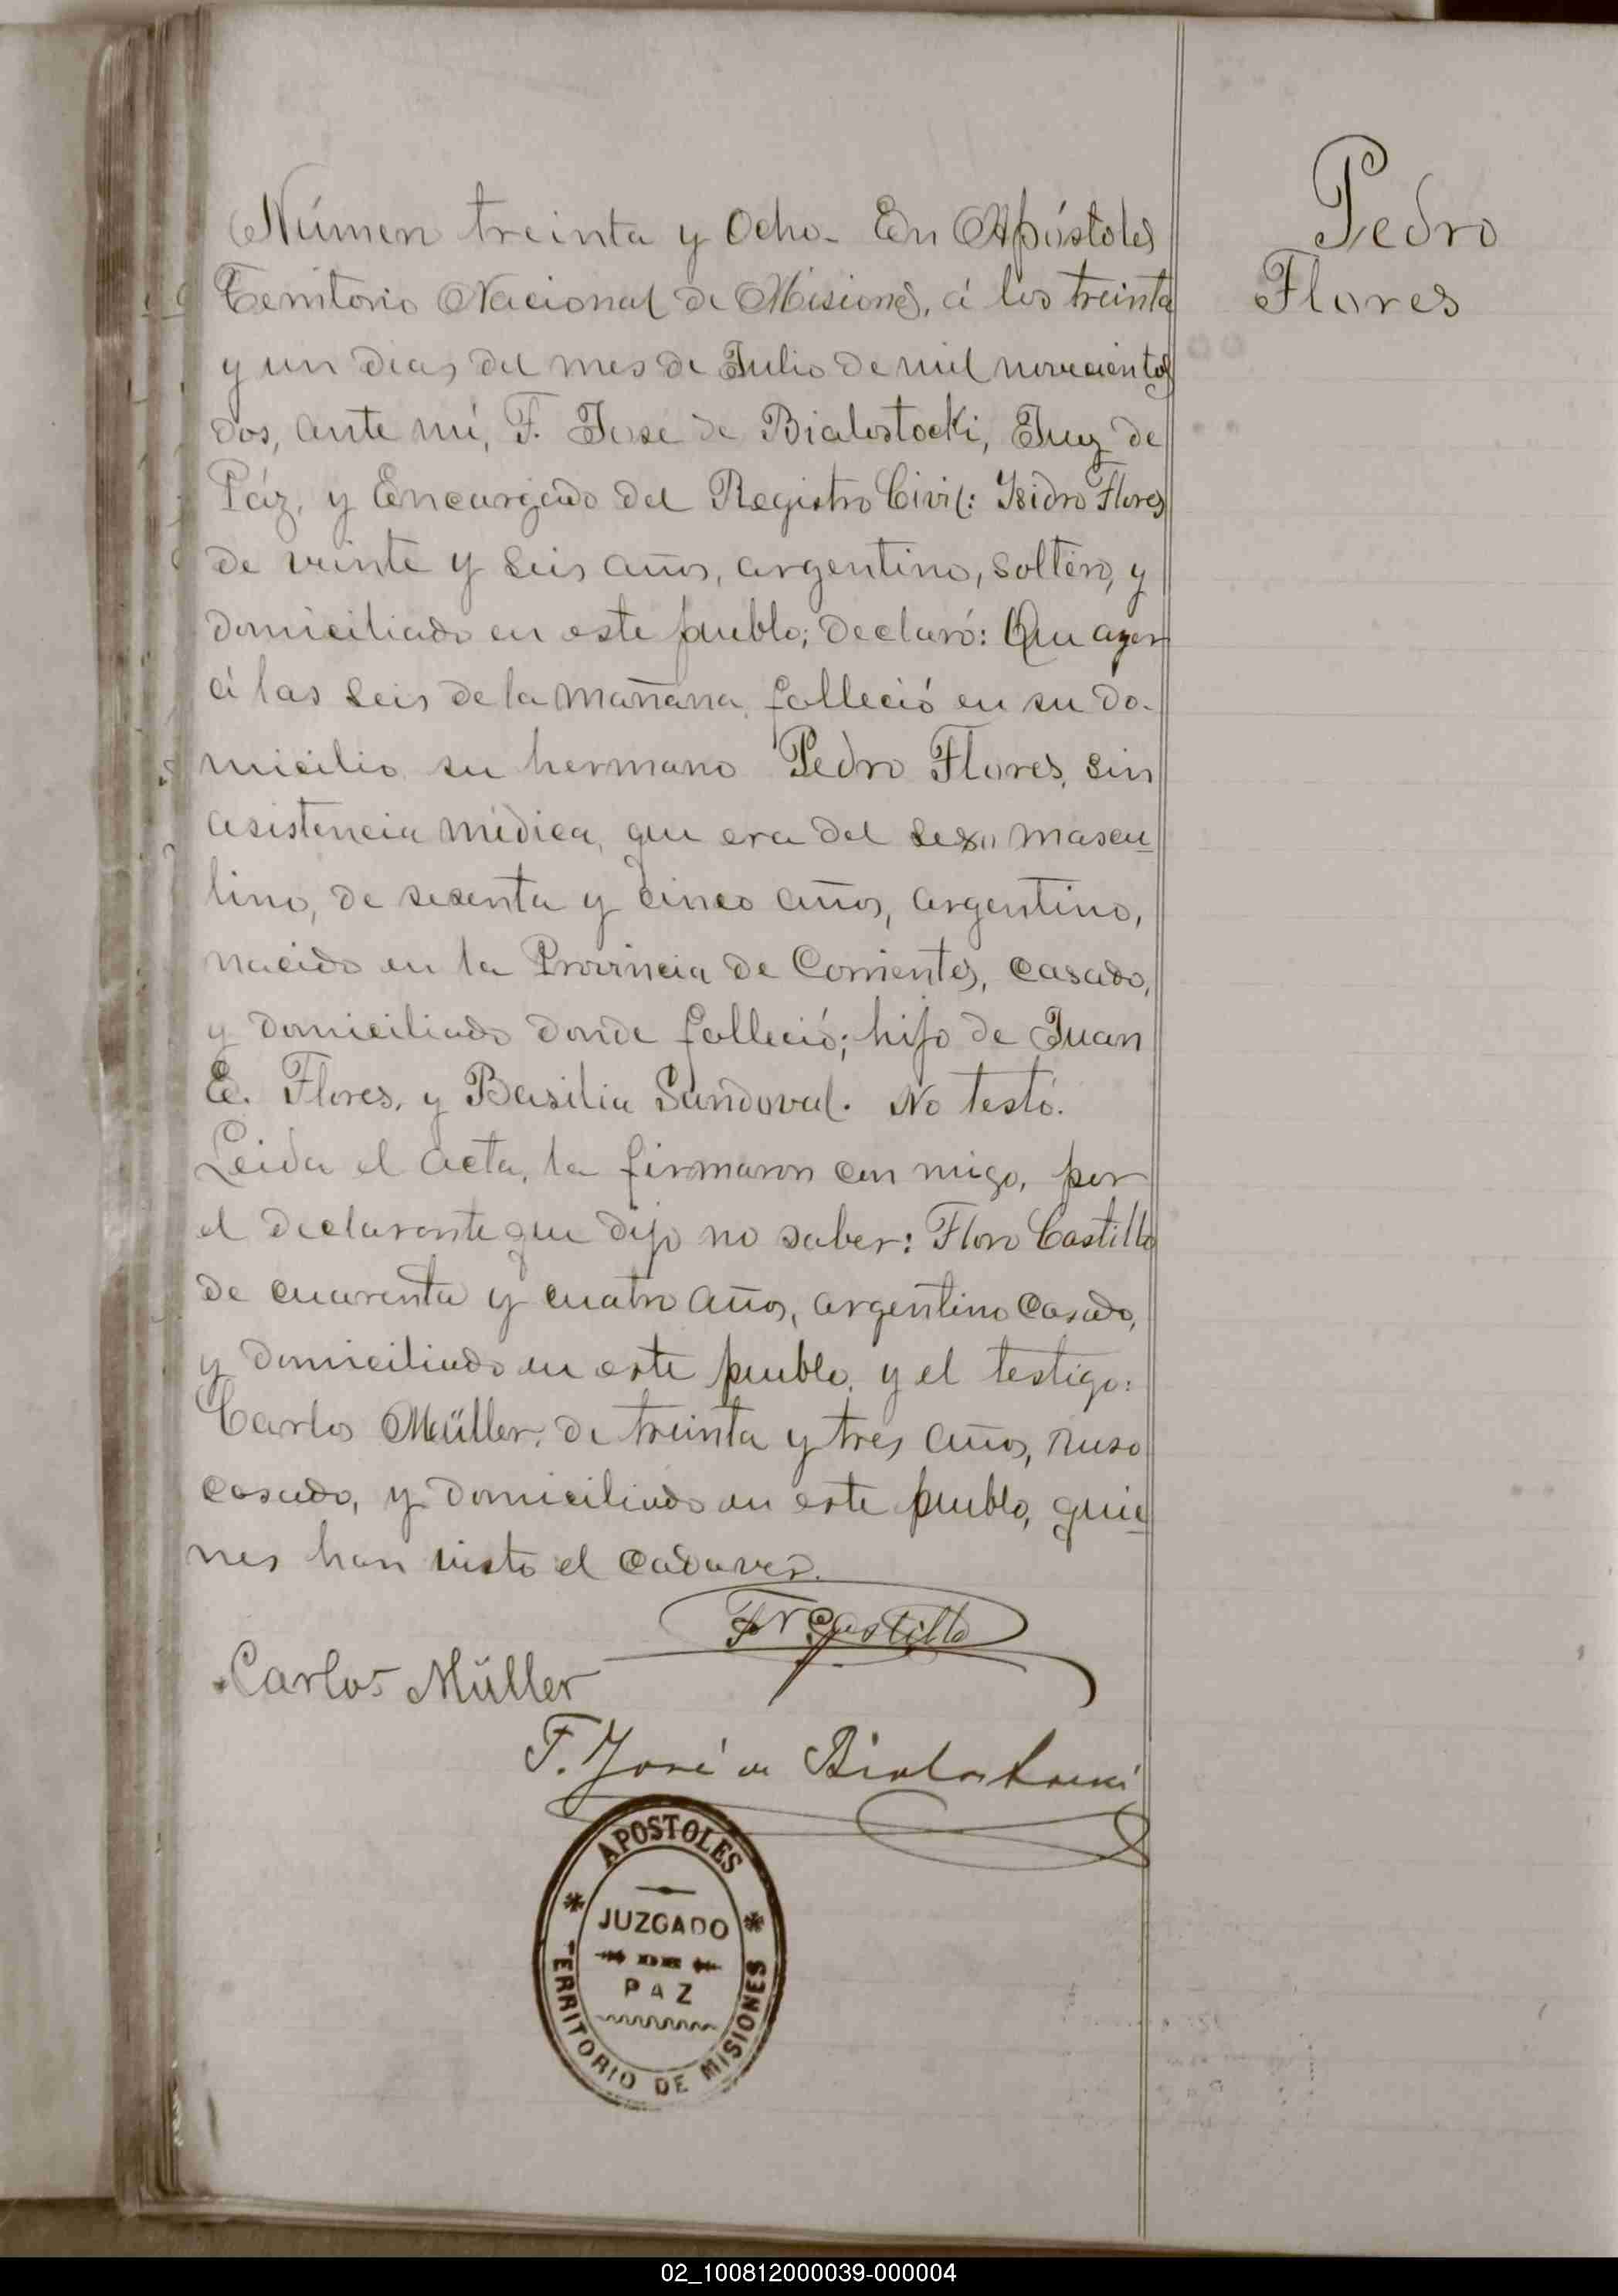 Pedro
Flores
Número treinta y Ocho - En Apóstoles
Territorio Nacional de Misiones, á los treinta
y un dias del mes de Julio de mil novecientos
dos, ante mi, F. José de Bialostocki, Juez de
Páz, y Encargado del Registro Civil: Ysidro Flores
de veinte y seis años, argentino, soltero, y
domiciliado en este pueblo; declaró: Que ayer
á las seis de la mañana falleció en su do-
micilio su hermano Pedro Flores, sin
asistencia médica, que era del sexo mascu
lino, de sesenta y cinco años, argentino,
nacido en la Provincia de Corrientes, casado,
y domiciliado donde falleció; hijo de Juan
E. Flores, y Basilia Sandoval. No testó.
Leida el acta, la firmaron con migo, por
el declarante que dijo no saber: Floro Castillo
de cuarenta y cuatro años, argentino casado,
y domiciliado en este pueblo, y el testigo:
Carlos Müller, de treinta y tres años, ruso
casado, y domiciliado en este pueblo, quie
nes han visto el cadaver.
Castillo
Carlos Müller
F. José de Bialostocki
APOSTOLES
JUZGADO
DE
PAZ
TERRITORIO DE MISIONES
02_100812000039-000004